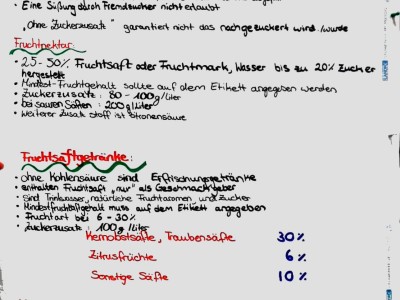 • Eine Süßung durch Fremdzucker nicht erlaubt
„Ohne Zuckerzusatz" garantiert nicht das nachgezuckert wird/wurde
Fruchtnektar:
• 25-50% Fruchtsaft oder Fruchtmark, Wasser bis zu 20% Zucker
hergestellt
• Mindest-Fruchtgehalt sollte auf dem Etikett angegeben werden
• Zuckerzusatz: 80-100g/liter
• bei sauren Säften: 200g/liter
• weiterer Zusatzstoff ist Zitronensäure
Fruchtsaftgetränke:
• ohne Kohlensäure sind Erfrischungsgetränke
• enthalten Fruchtsaft „nur" als Geschmackgeber
• sind Trinkwasser, natürliche Fruchtaromen und Zucker
• Mindestfruchtsaftgehalt muss auf dem Etikett angegeben
• Fruchtart bei 6-30%
• Zuckerzusatz: 100g/liter
Kernobstsäfte, Traubensäfte 30%
Zitrusfrüchte 6%
Sonstige Säfte 10%